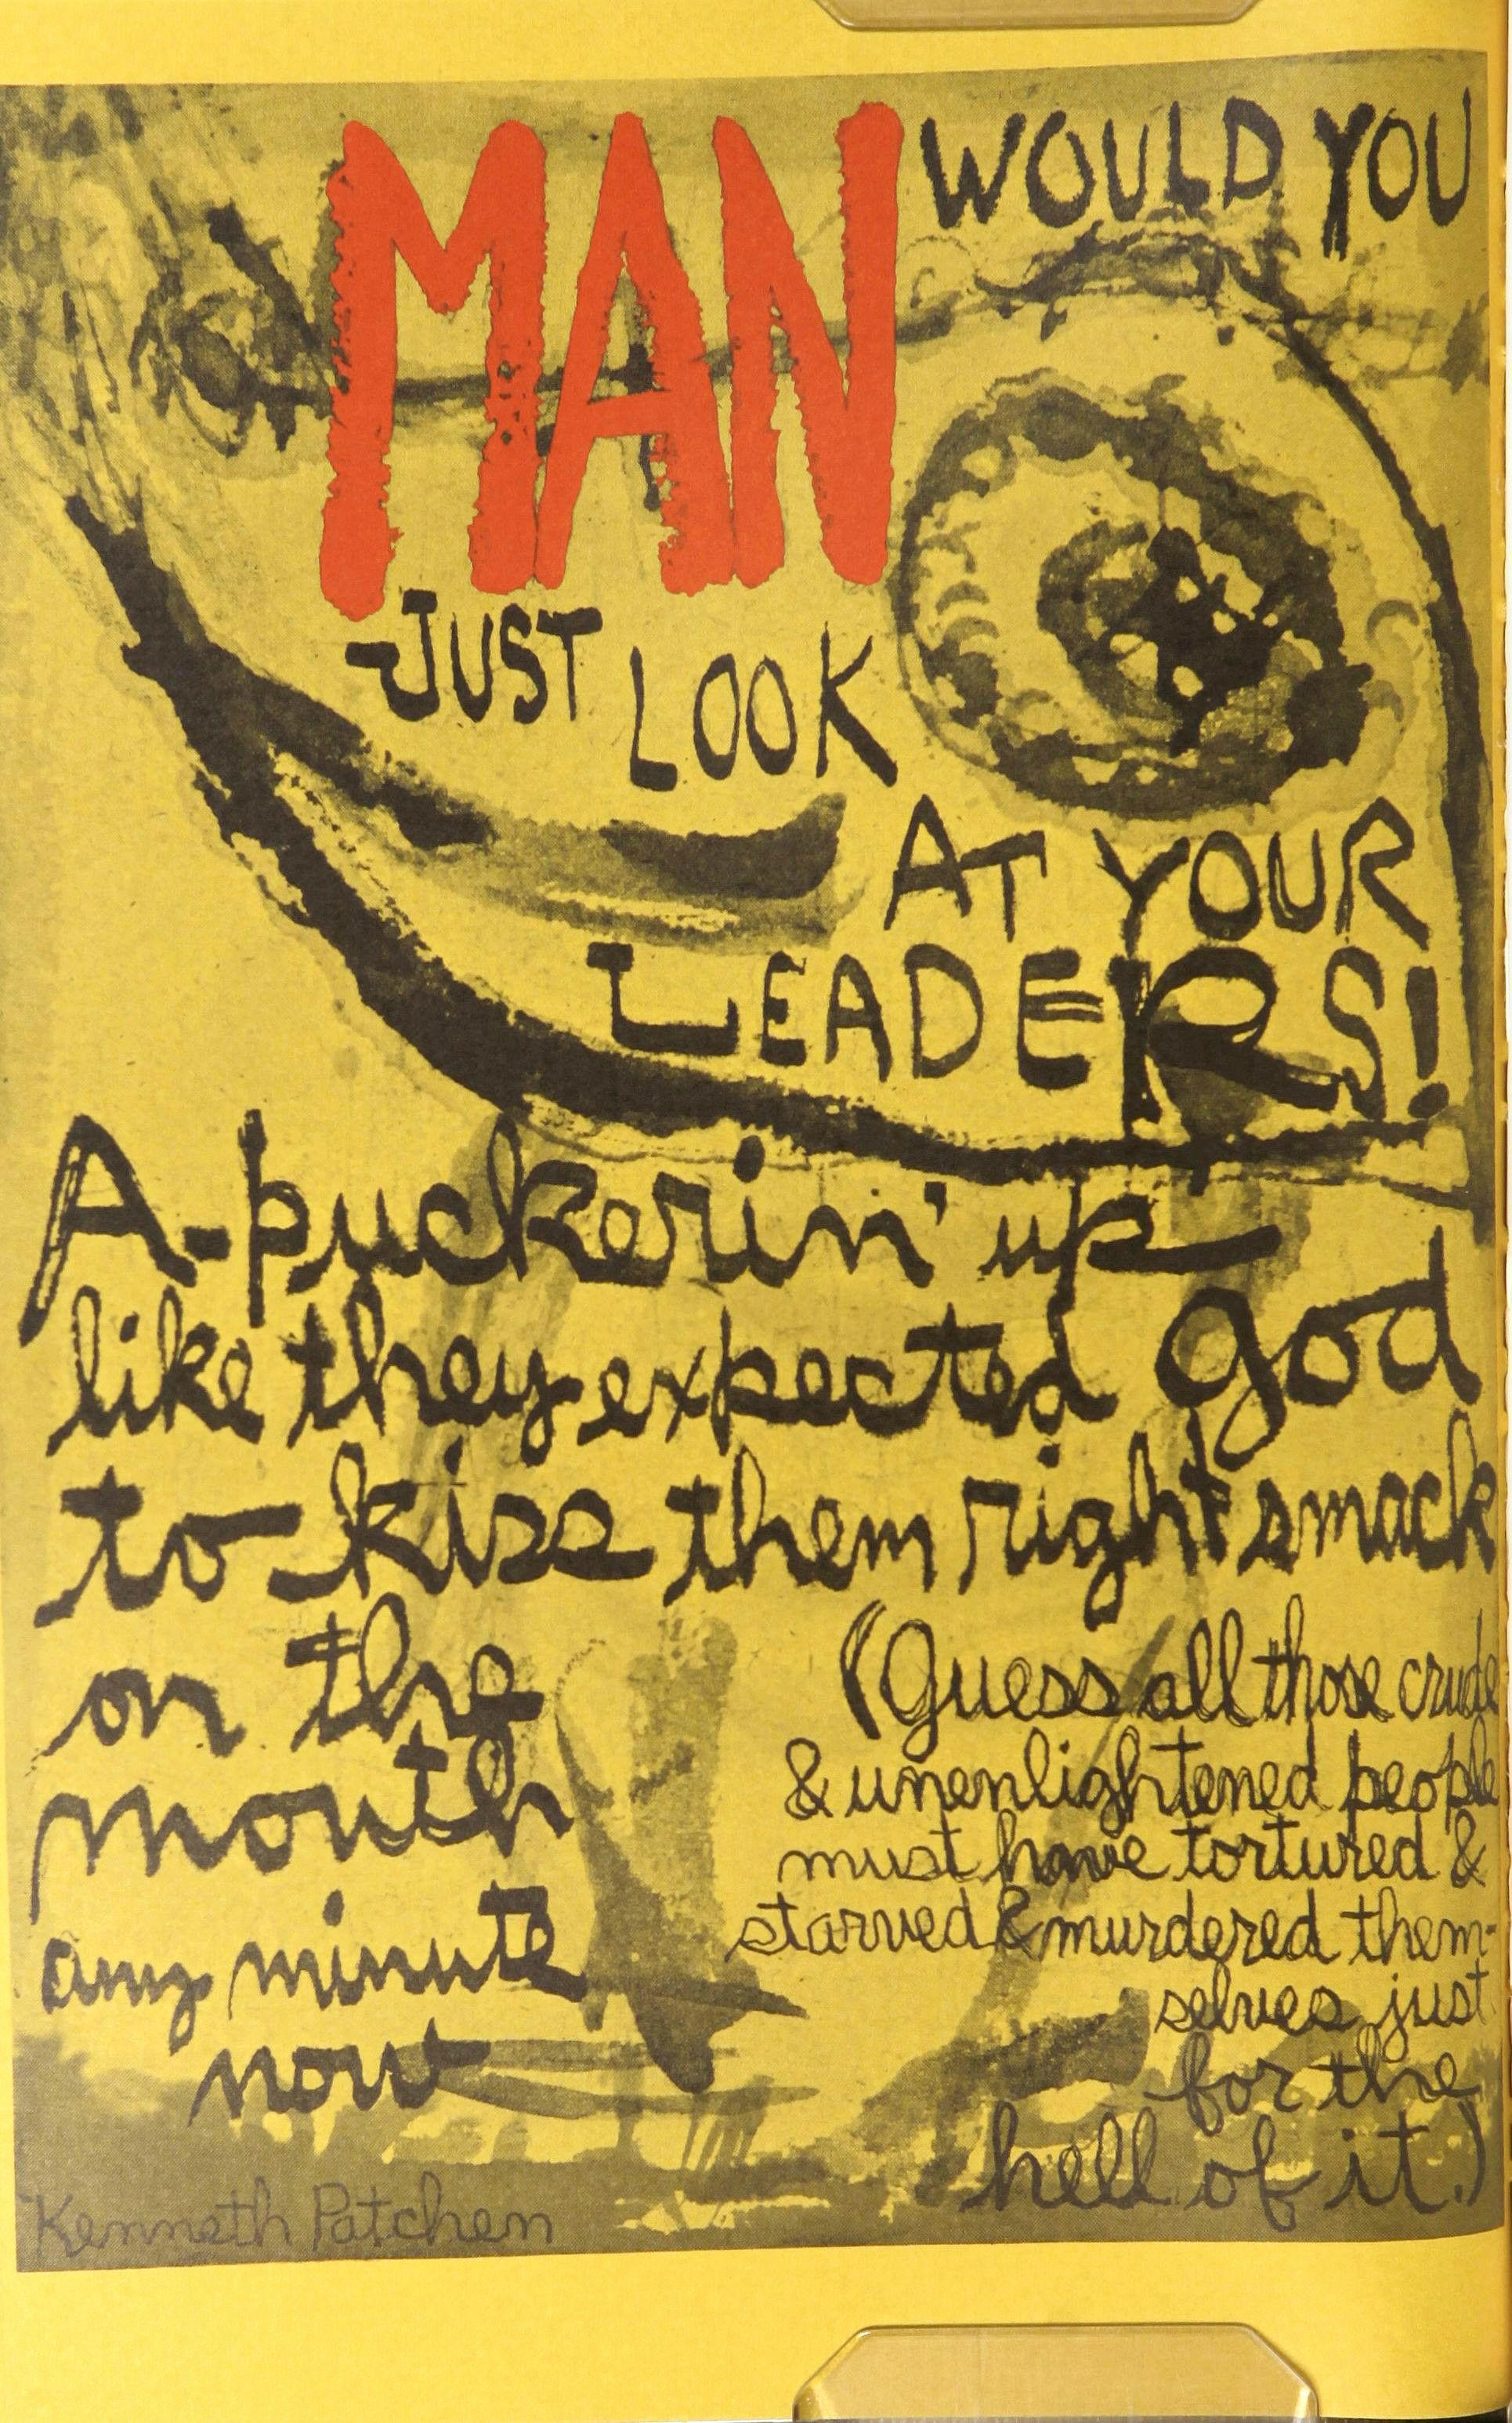 MAN WOULD YOU
JUST LOOK
AT YOUR
LEADERS!
A-puckerin' up
like they expected god
to kiss them right smack
on the
mouth
any minute
now
(Guess all those crude
& unenlightened people
must have tortured &
starved & murdered them-
selves just
for the
hell of it.)
Kenneth Patchen